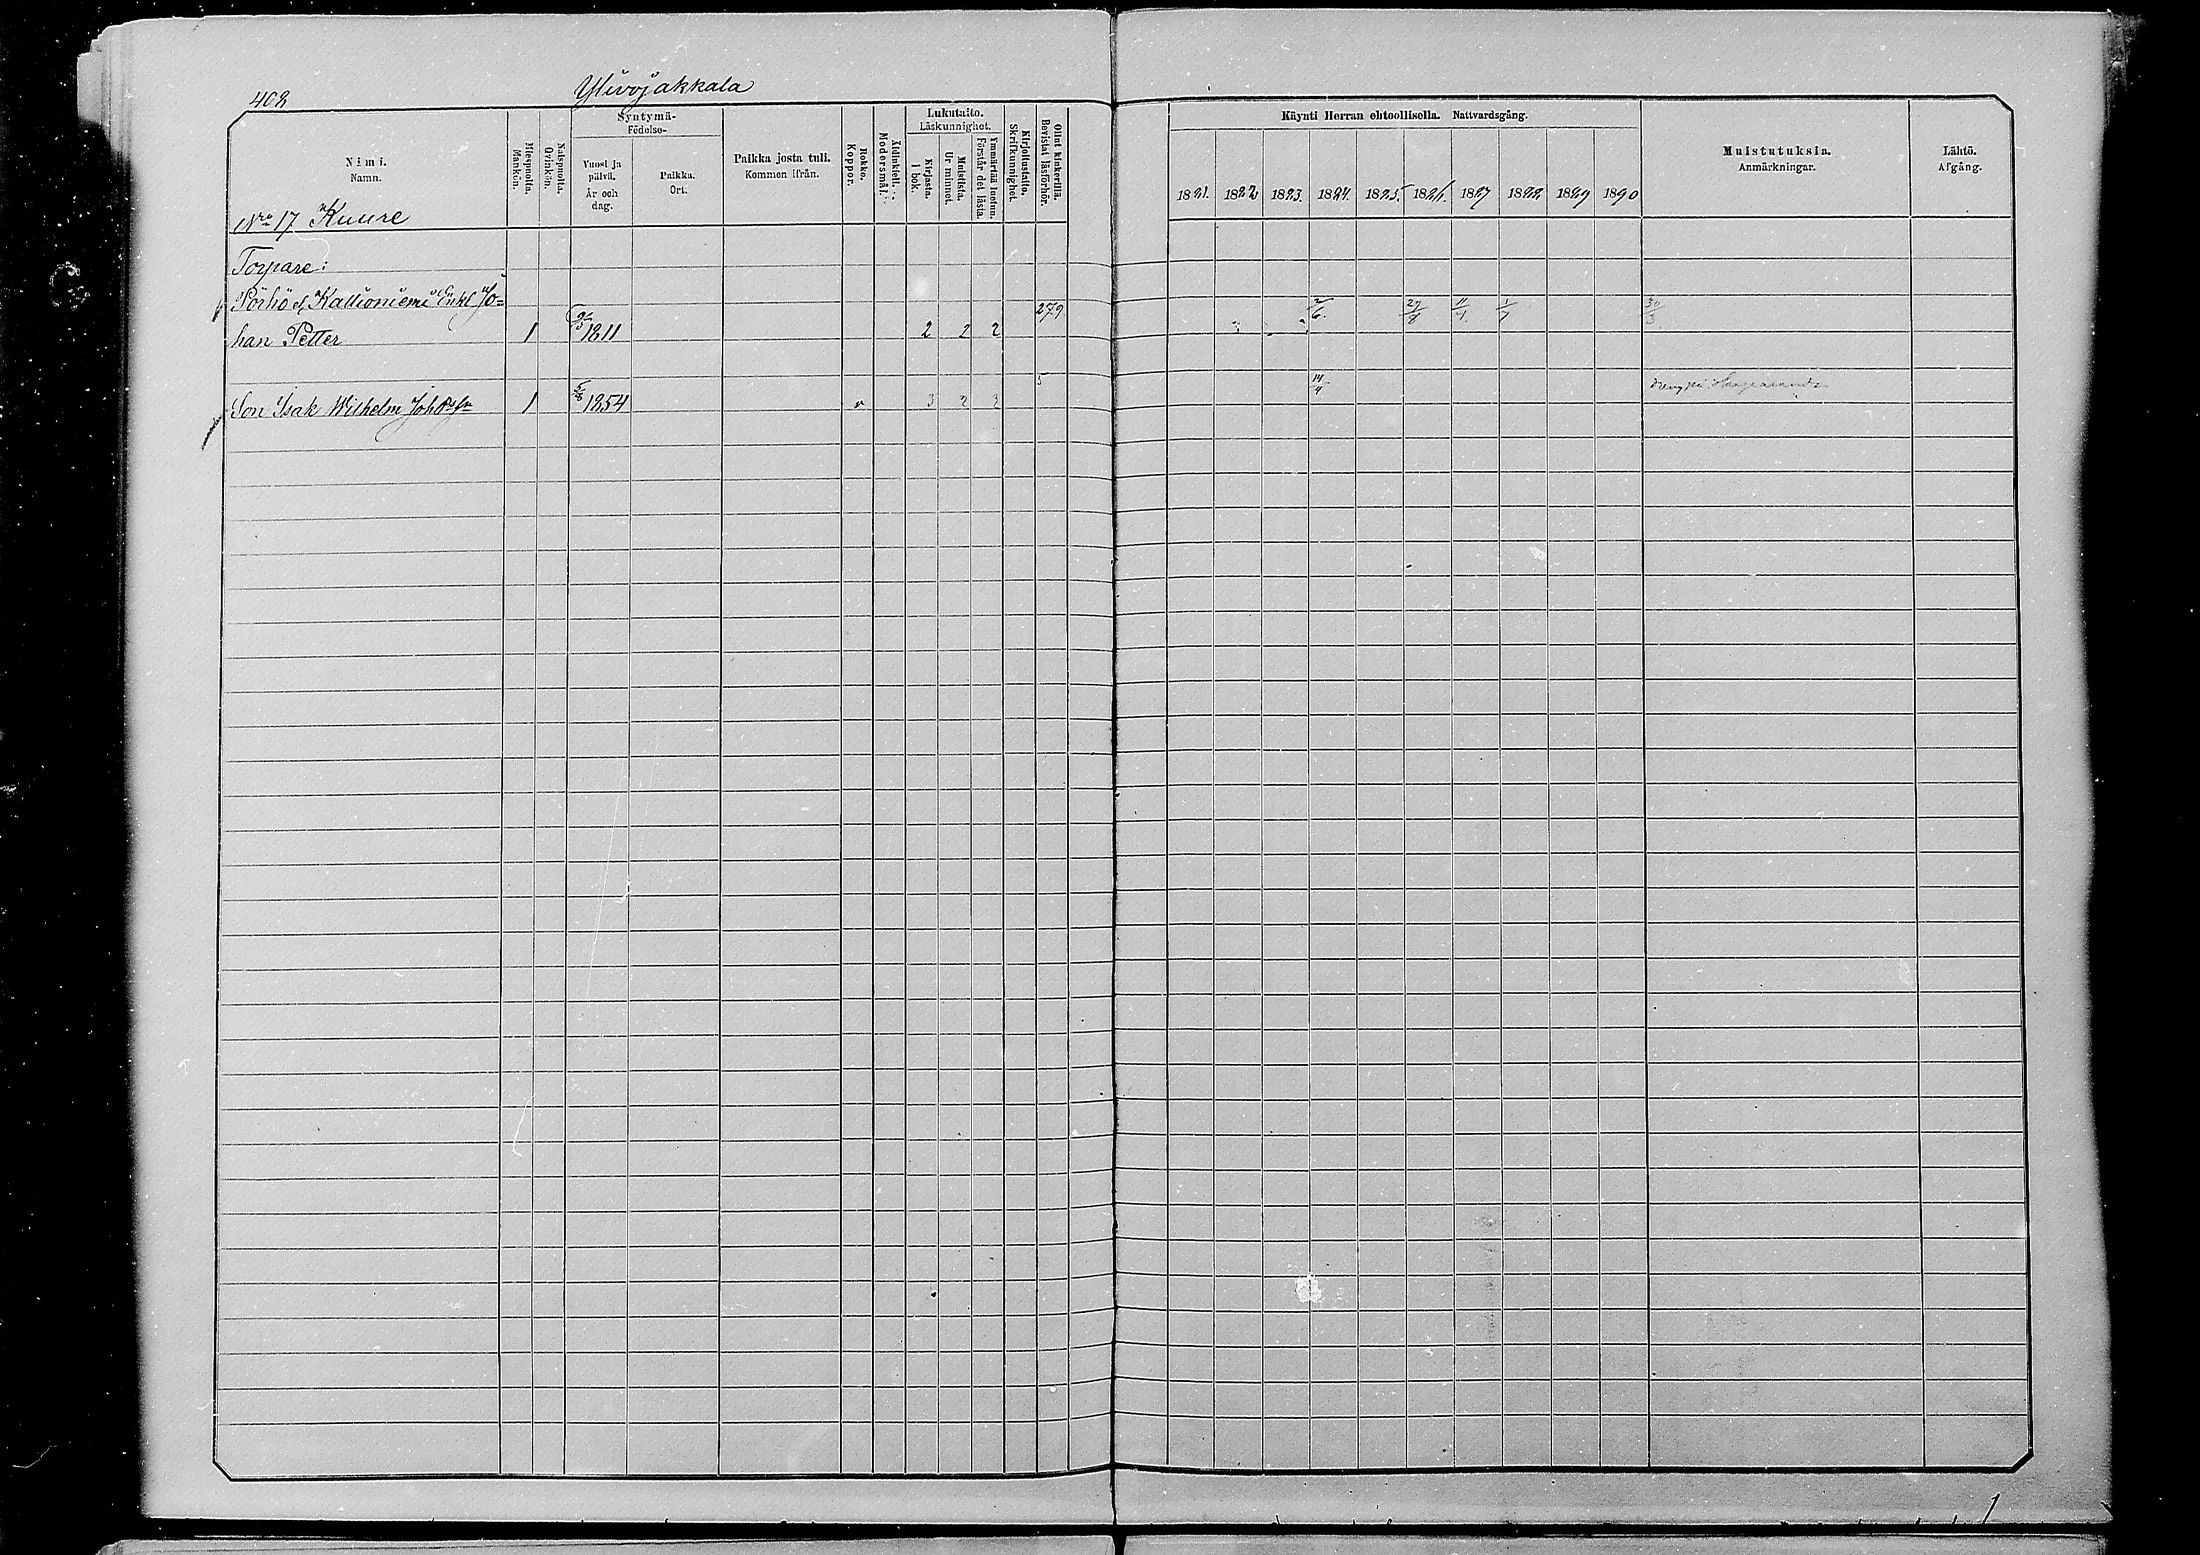 408
Ylivojakkala
Nimi.
Namn.
Miespuolta.
Mankön.
Naispuolta.
Qvinkön.
Syntymä-
Födelse-
Vuosi ja
päivä.
År och
dag.
Paikka.
Ort.
Paikka josta tuli.
Kommen ifrån.
Rokko.
Koppor.
Äidinkieli.
Modersmål.
Lukutaito.
Läskunnighet.
Kirjasta.
I bok.
Muistista.
Ur minnet.
Ymmärtää luetun.
Förstår det lästa
Kirjoitustaito.
Skrifkunnighet.
Ollut kinkerillä.
Bevistat läsförhör.
Käynti Herran ehtoollisella. Nattvardsgång.
1881. 1882 1883. 1884. 1885. 1886. 1887 1888 1889 1890
Muistutuksia.
Anmärkningar.
Lähtö.
Afgång.
Nro 17 Kuure
Torpare:
Pörhö el. Kallioniemi Enkl Jo=
han Petter 1 1811 2 2 2 279 2/6. 29/8 11/9. 1/7 30/3
Son Isak Wilhelm Johssn 1 5/8 1854 v 3 2 3 5 14/4